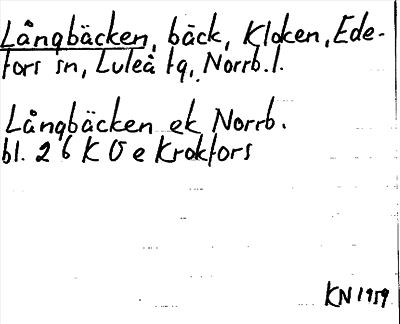 Långbäcken, bäck, Kloken, Ede-
fors sn, Luleå tg, Norrb.l.
Långbäcken ek Norrb.
bl. 26 K O e Krokfors
KN 1959